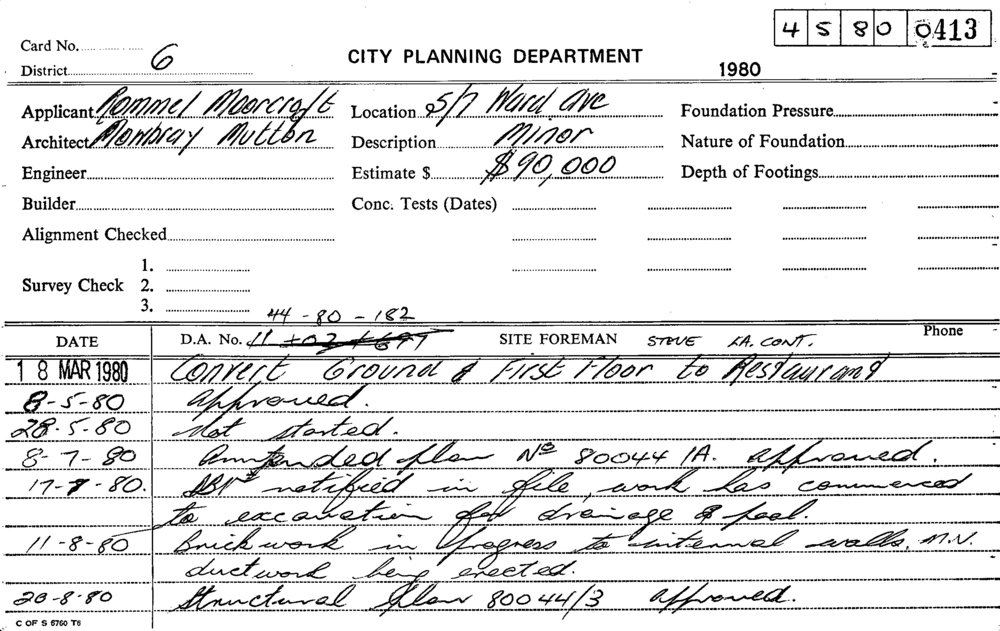 4 5 80 0413
Card No.
6
District
CITY PLANNING DEPARTMENT
1980
Applicant Rommel Moorcroft
Location 5/7 Ward Ave
Foundation Pressure
Architect Mowbray Mutton
Description Minor
Nature of Foundation
Engineer
Estimate $ $90,000
Depth of Footings
Builder
Conc. Tests (Dates)
Alignment Checked
1.
Survey Check 2.
3.
44-80-182
DATE
D.A. No. 11
SITE FOREMAN STEVE LA. CONT.
Phone
18 MAR 1980 Convert Ground & First Floor to Restaurant
8-5-80 Approved.
28-5-80 Not started.
8-7-80 Ammended plan No 80044 1A. approved.
17-7-80. notified in file, work has commenced
to excavation for drainage & pool.
11-8-80 Brickwork in progress to internal walls, M.V.
ductwork being erected.
20-8-80 Structural plan 80044/3 approved.
C OF S 6760 T6